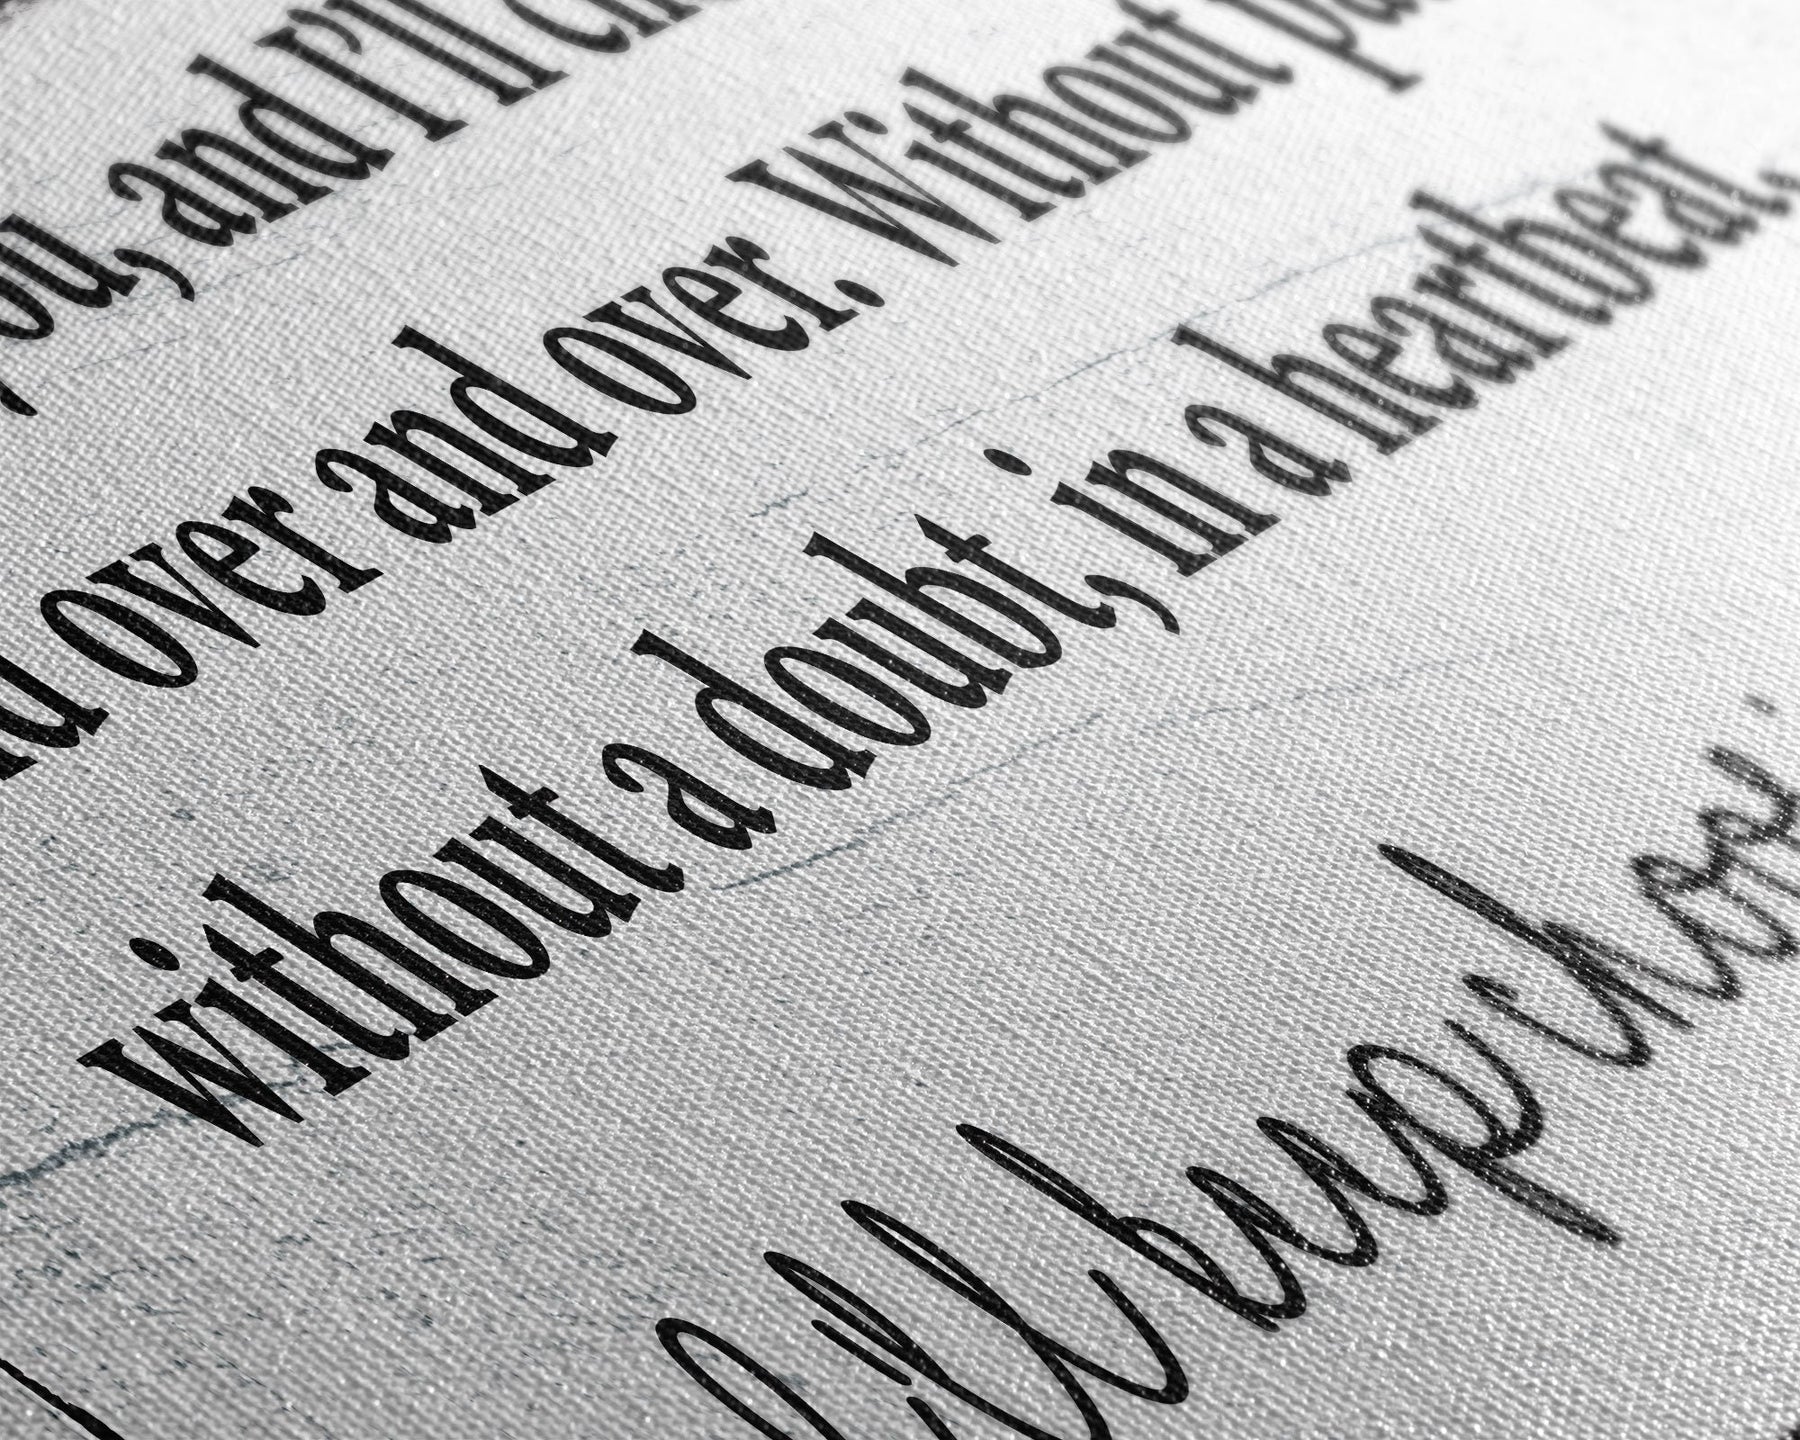 ou, and I'll
over and over. Without
without a doubt, in a heartbeat,
I'll keep choosi